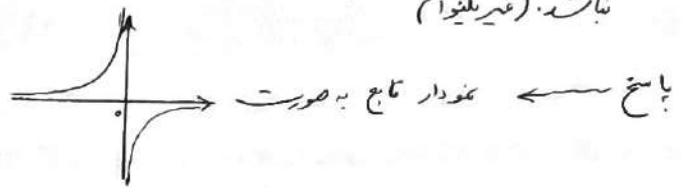 نباشد. (غیر یکنوا)
پاسخ ← نمودار تابع به صورت